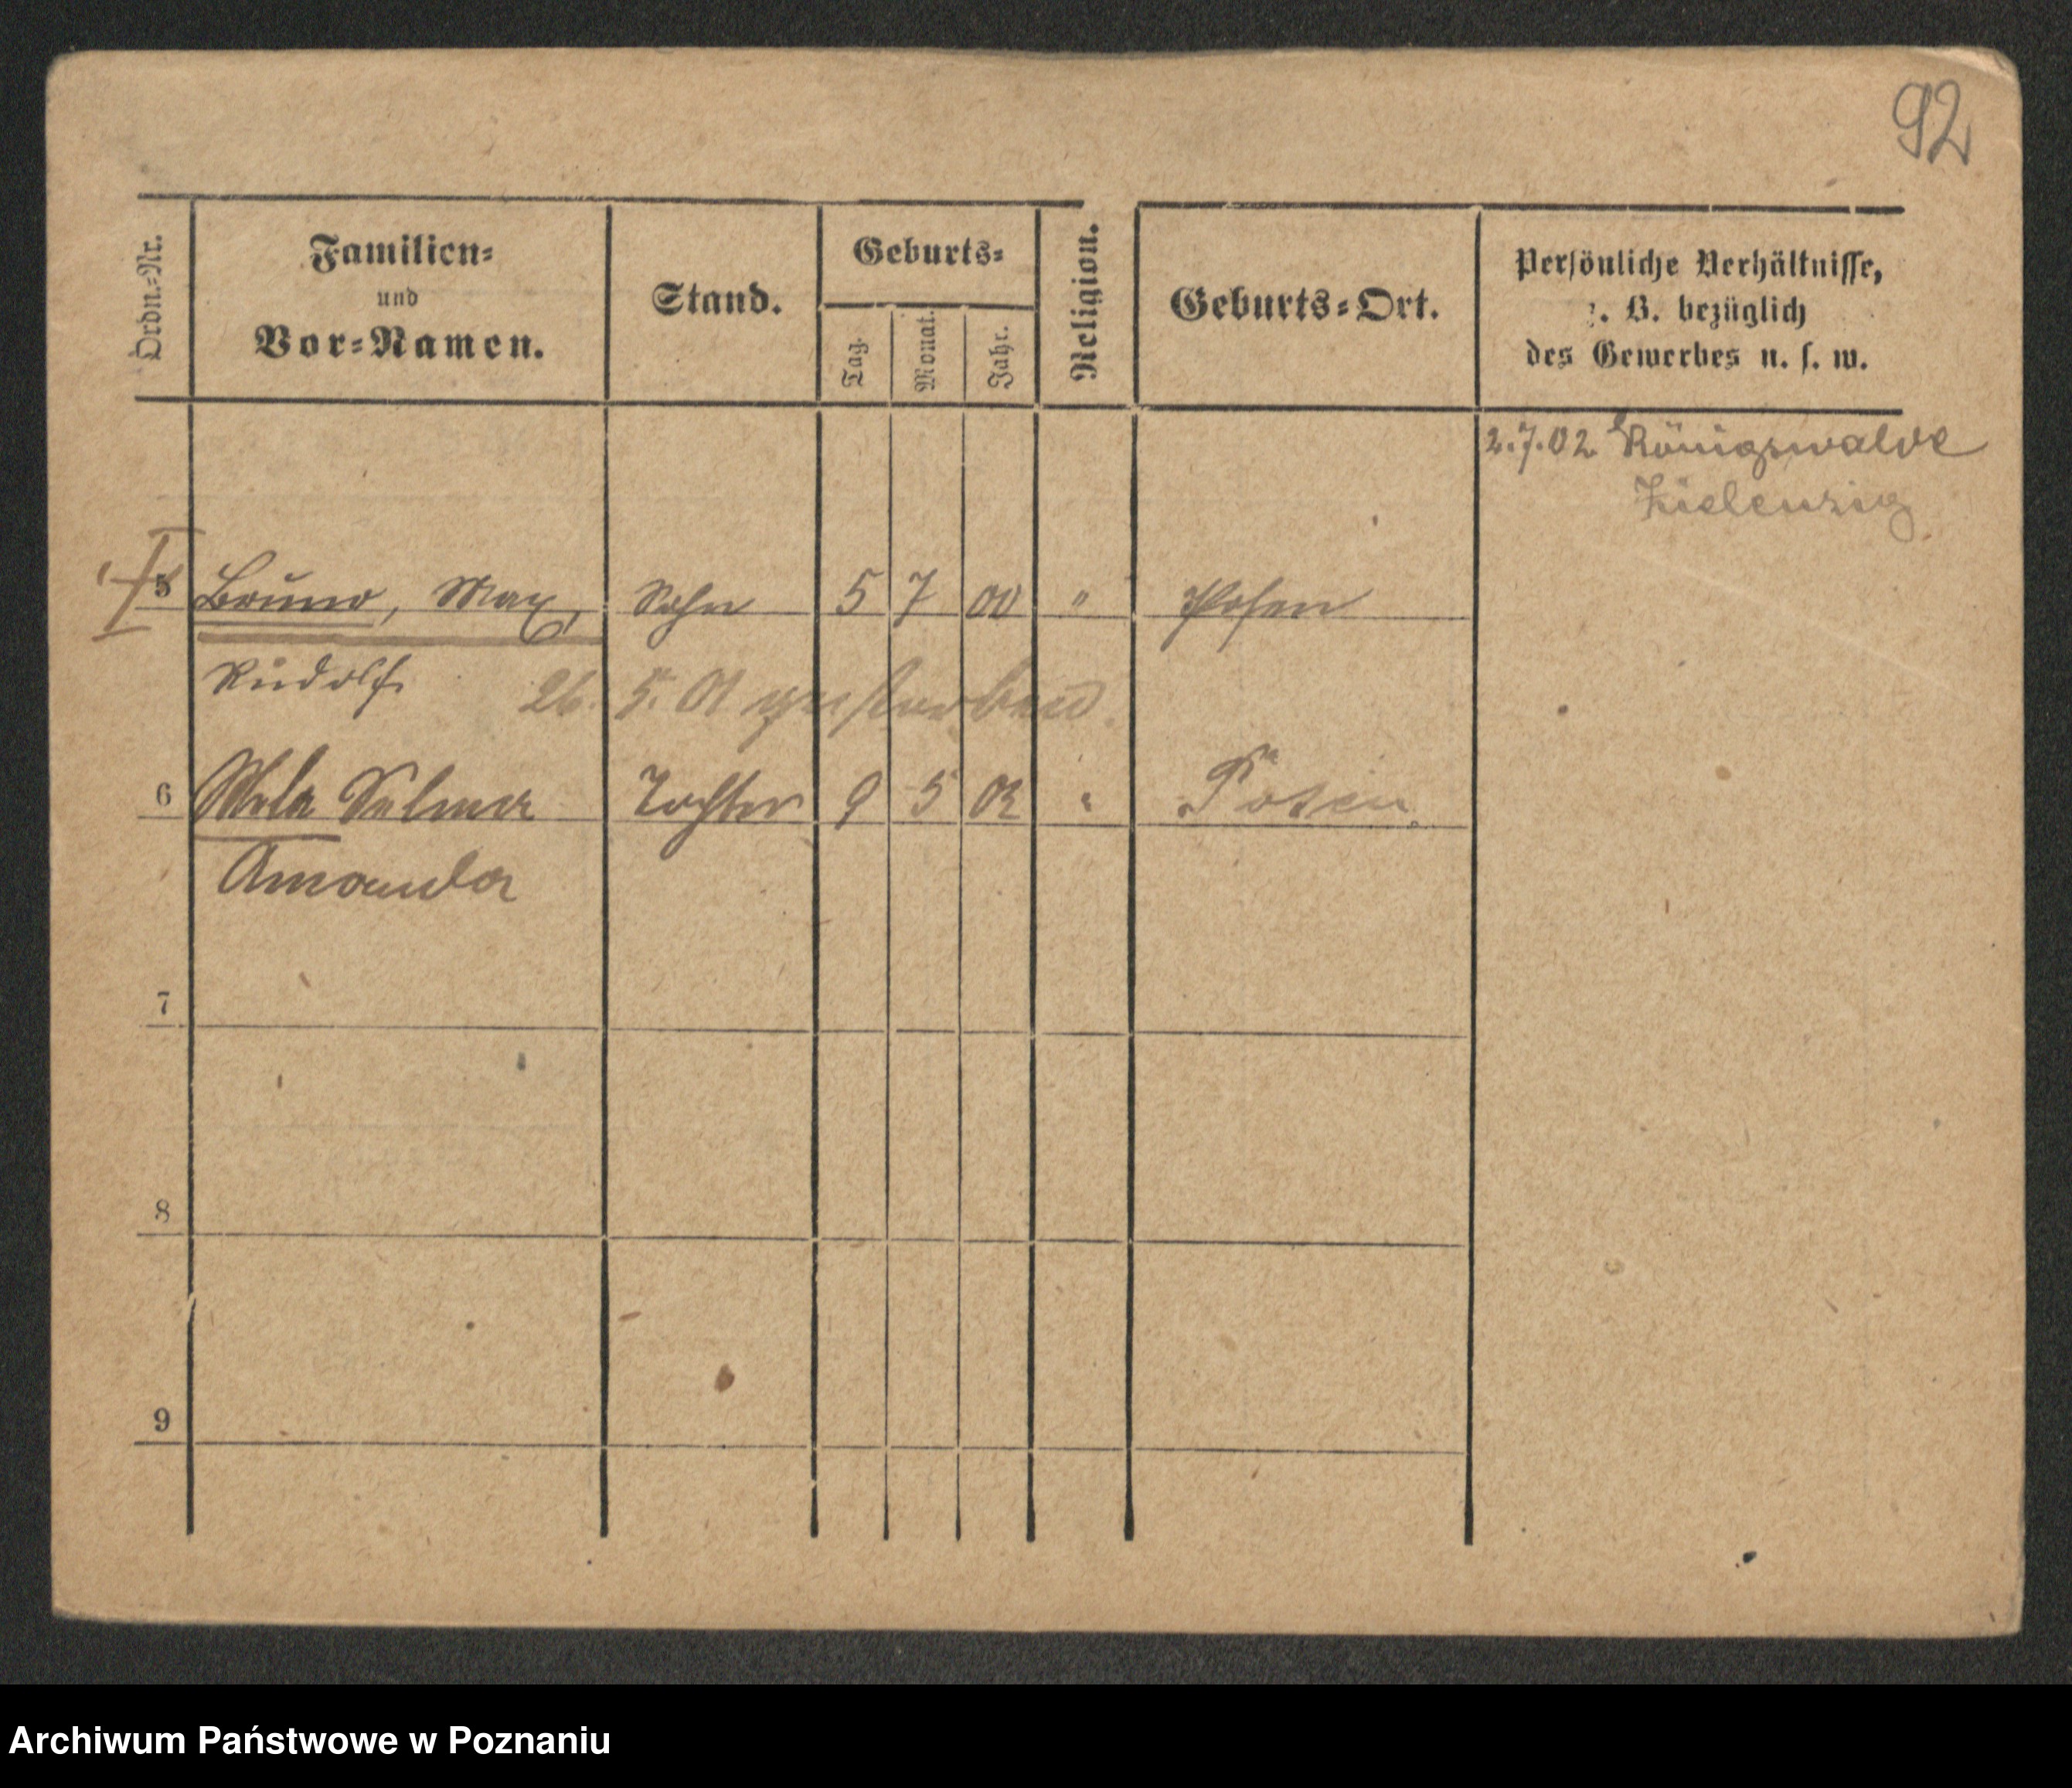 92
Ordn.-Nr.
Familien-
und
Vor-Namen.
Stand.
Geburts-
Tag.
Monat.
Jahr.
Religion.
Geburts-Ort.
Persönliche Verhältnisse,
z. B. bezüglich
des Gewerbes u. s. w.
2.7.02 Königswalde
Zielenzig
5 Bruno, Max, Sohn 5 7 00 " Posen
Rudolf.
26. 5. 01 gestorben.
6 Selma Tochter 9 5 02 " Posen.
Amanda
7
8
9
Archiwum Państwowe w Poznaniu